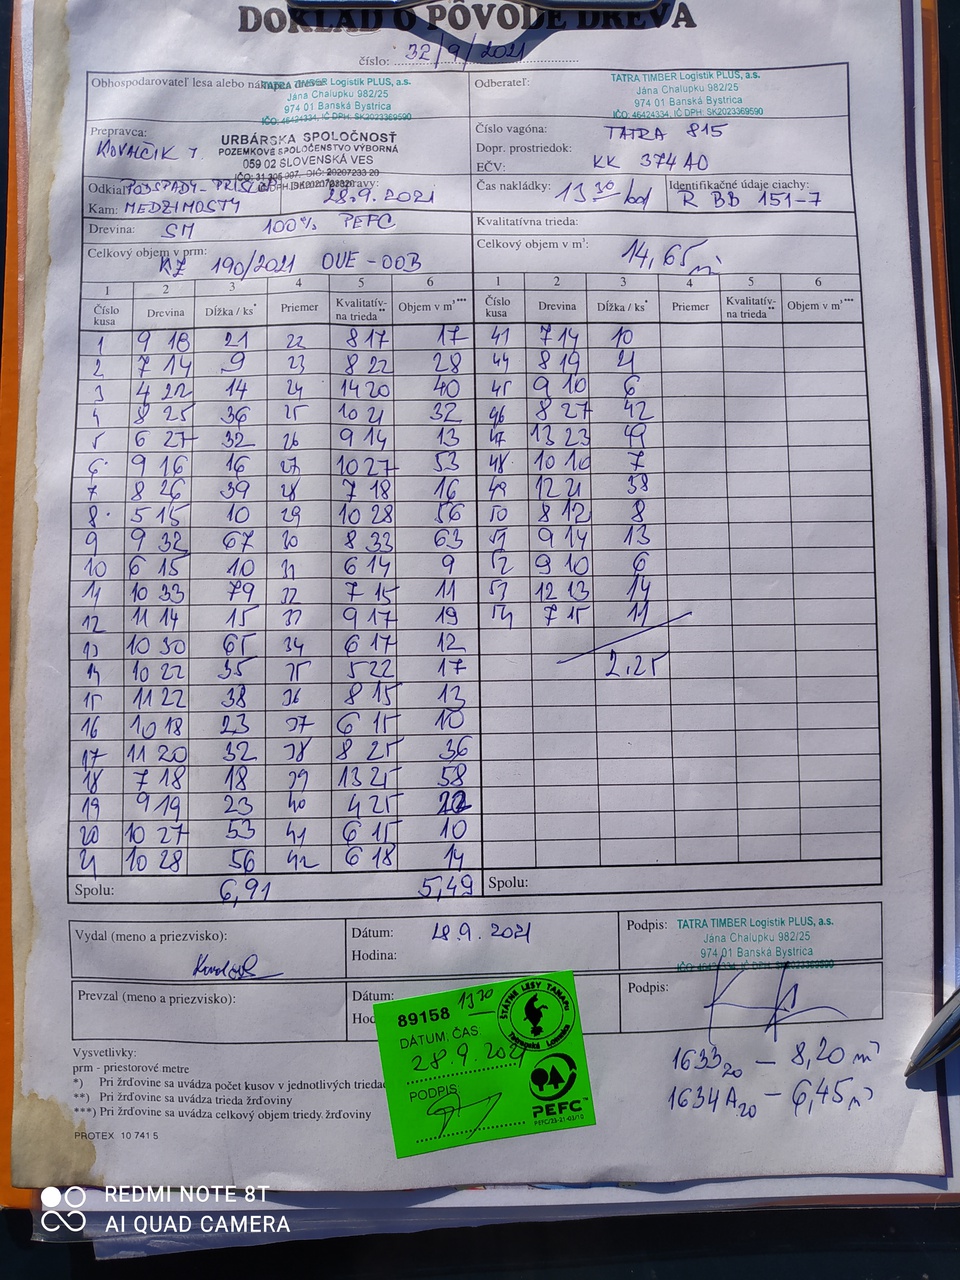 DOKLAD O PÔVODE DREVA
číslo: 32/9/2021
Obhospodarovateľ lesa alebo
TATRA TIMBER Logistik PLUS, a.s.
Jána Chalupku 982/25
974 01 Banská Bystrica
IČO: 46424334, IČ DPH: SK2023369590
Odberateľ:
TATRA TIMBER Logistik PLUS, a.s.
Jána Chalupku 982/25
974 01 Banská Bystrica
IČO: 46424334, IČ DPH: SK2023369590
Prepravca:
KOVALČIK T
URBÁRSKA SPOLOČNOSŤ
POZEMKOVÉ SPOLOČENSTVO VÝBORNÁ
059 02 SLOVENSKÁ VES
Číslo vagóna: TATRA 815
Dopr. prostriedok:
EČV: KK 374AO
Odkiaľ: PODSPADY - PRISLOP
28.9.2021
Kam: MEDZIMOSTY
Čas nakládky: 13 30 hod
Identifikačné údaje ciachy:
R BB 151-7
Drevina: SM 100% PEFC
Kvalitatívna trieda:
Celkový objem v prm:
KZ 190/2021 OUE-OOB
Celkový objem v m³: 14,65 m³
1 2 3 4 5 6 1 2 3 4 5 6
Číslo kusa Drevina Dĺžka / ks* Priemer Kvalitatív- na trieda** Objem v m³*** Číslo kusa Drevina Dĺžka / ks* Priemer Kvalitatív- na trieda** Objem v m³***
1 9 18 21 22 8 17 17 43 7 14 10
2 7 14 9 23 8 22 28 44 8 19 21
3 4 22 14 24 14 20 40 45 9 10 6
4 8 25 36 25 10 21 32 46 8 27 42
5 6 27 32 26 9 14 13 47 13 23 49
6 9 16 16 27 10 27 53 48 10 10 7
7 8 26 39 28 7 18 16 49 12 21 38
8 5 15 10 29 10 28 56 50 8 12 8
9 9 32 67 30 8 33 63 51 9 14 13
10 6 15 10 31 6 14 9 52 9 10 6
11 10 33 79 32 7 15 11 53 12 13 14
12 11 14 15 33 9 17 19 54 7 15 11
13 10 30 65 34 6 17 12
14 10 22 35 35 5 22 17 2,25
15 11 22 38 36 8 15 13
16 10 18 23 37 6 15 10
17 11 20 32 38 8 25 36
18 7 18 18 39 13 25 58
19 9 19 23 40 4 25
20 10 27 53 41 6 15 10
21 10 28 56 42 6 18 14
Spolu: 6,91 5,49 Spolu:
Vydal (meno a priezvisko):
Dátum: 28.9.2021
Hodina:
Podpis:
TATRA TIMBER Logistik PLUS, a.s.
Jána Chalupku 982/25
974 01 Banská Bystrica
Prevzal (meno a priezvisko):
Dátum:
Podpis:
89158 13 30
DÁTUM, ČAS
28 9. 2021
PODPIS
ŠTÁTNE LESY TANAPU
Tatranská Lomnica
PEFC™
1633 20 - 8,20 m³
1634A 20 - 6,45 m³
Vysvetlivky:
prm - priestorové metre
*) Pri žrďovine sa uvádza počet kusov v jednotlivých
**) Pri žrďovine sa uvádza trieda žrďoviny
***) Pri žrďovine sa uvádza celkový objem triedy žrďoviny
PROTEX 10 741 5
REDMI NOTE 8T
AI QUAD CAMERA